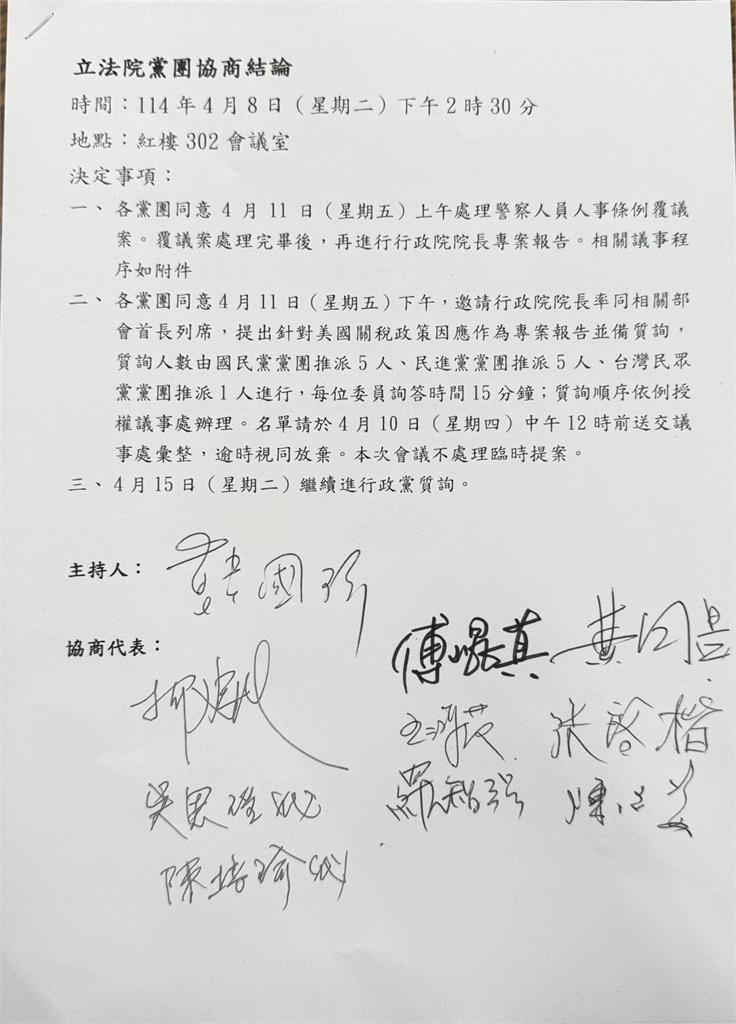 立法院黨團協商結論
時間：114年4月8日（星期二）下午2時30分
地點：紅樓302會議室
決定事項：
一、各黨團同意4月11日（星期五）上午處理警察人員人事條例覆議
案。覆議案處理完畢後，再進行行政院院長專案報告。相關議事程
序如附件
二、各黨團同意4月11日（星期五）下午，邀請行政院院長率同相關部
會首長列席，提出針對美國關稅政策因應作為專案報告並備質詢，
質詢人數由國民黨黨團推派5人、民進黨黨團推派5人、台灣民眾
黨黨團推派1人進行，每位委員詢答時間15分鐘；質詢順序依例授
權議事處辦理。名單請於4月10日（星期四）中午12時前送交議
事處彙整，逾時視同放棄。本次會議不處理臨時提案。
三、4月15日（星期二）繼續進行政黨質詢。
主持人：韓國瑜
協商代表：
傅崐萁 黃國昌
柯建銘
張啓楷
羅智強
吳思瑤代
陳培瑜代